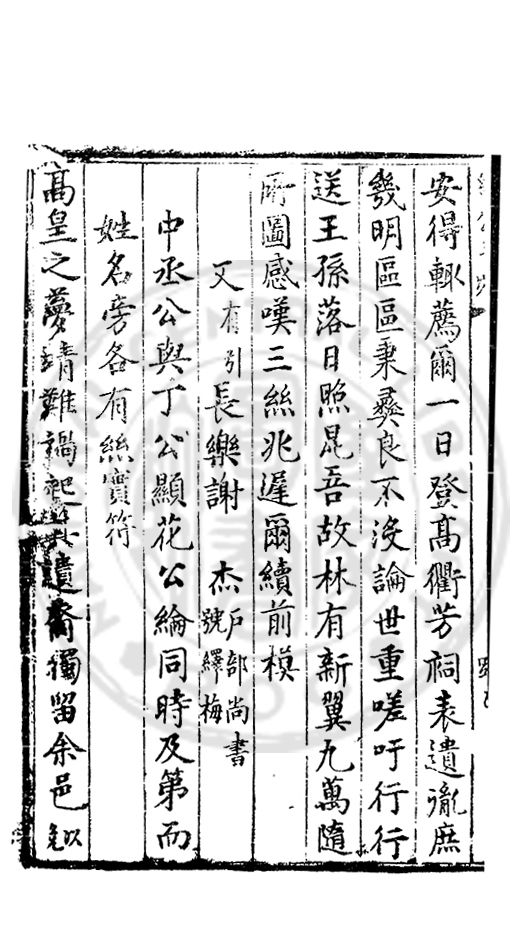 安得輙薦爾一日登高衢芳祠表遺胤庶
幾明區區秉彞良不没論世重嗟吁行行
送王孫落日照昆吾故林有新翼九萬隨
所圖感嘆三絲兆遲爾續前模
又有引長樂謝杰戶部尚書號繹梅
中丞公與丁公顯花公綸同時及第而
姓名旁各有絲實符
高皇之夢靖難禍起遺裔獨留余邑